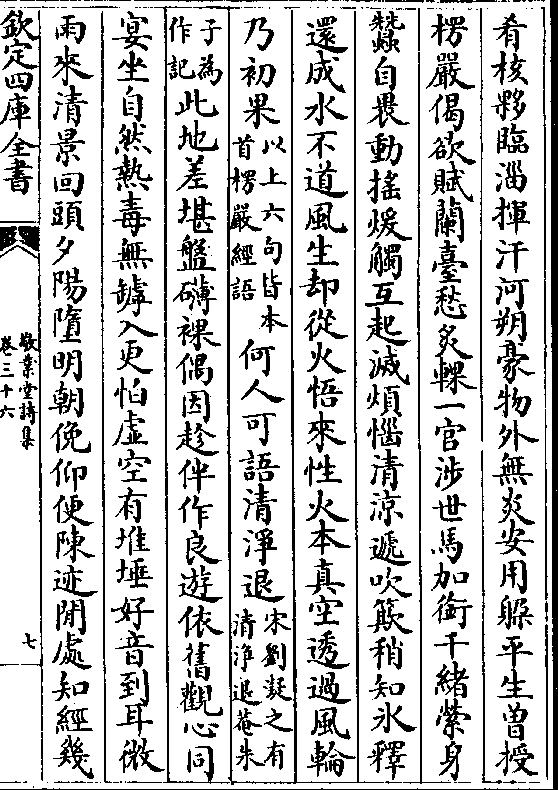 肴核夥臨淄揮汗河朔豪物外無炎安用躲平生曽授
楞嚴偈欲賦蘭臺愁炙輠一官涉世馬加銜千緒縈身
蠶自畏動揺煖觸互起滅煩惱清涼遞吹簸稍知氷釋
還成水不道風生却從火悟來性火本真空透過風輪
乃初果以上六句皆本首楞嚴經語何人可語清淨退宋劉凝之有清淨退菴朱
子為作記此地差堪盤礴裸偶因趁伴作良遊依舊觀心同
宴坐自然熱毒無罅入更怕虚空有堆垛好音到耳微
雨來清景回頭夕陽墮明朝俛仰便陳迹閒處知經幾
欽定四庫全書
敬業堂詩集
卷三十六
七